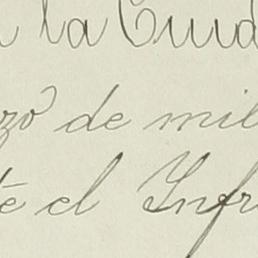 n la Ciud
zo de mil
te el Infr